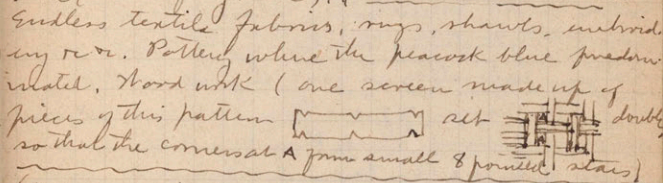 Endless textile fabrics, rugs, shawls, embroid-
ery &c &c. Pottery where the peacock blue predom-
inated. Wood work (one screen made up of
pieces of this pattern set double
so that the corners at A form small 8 pointed stars)